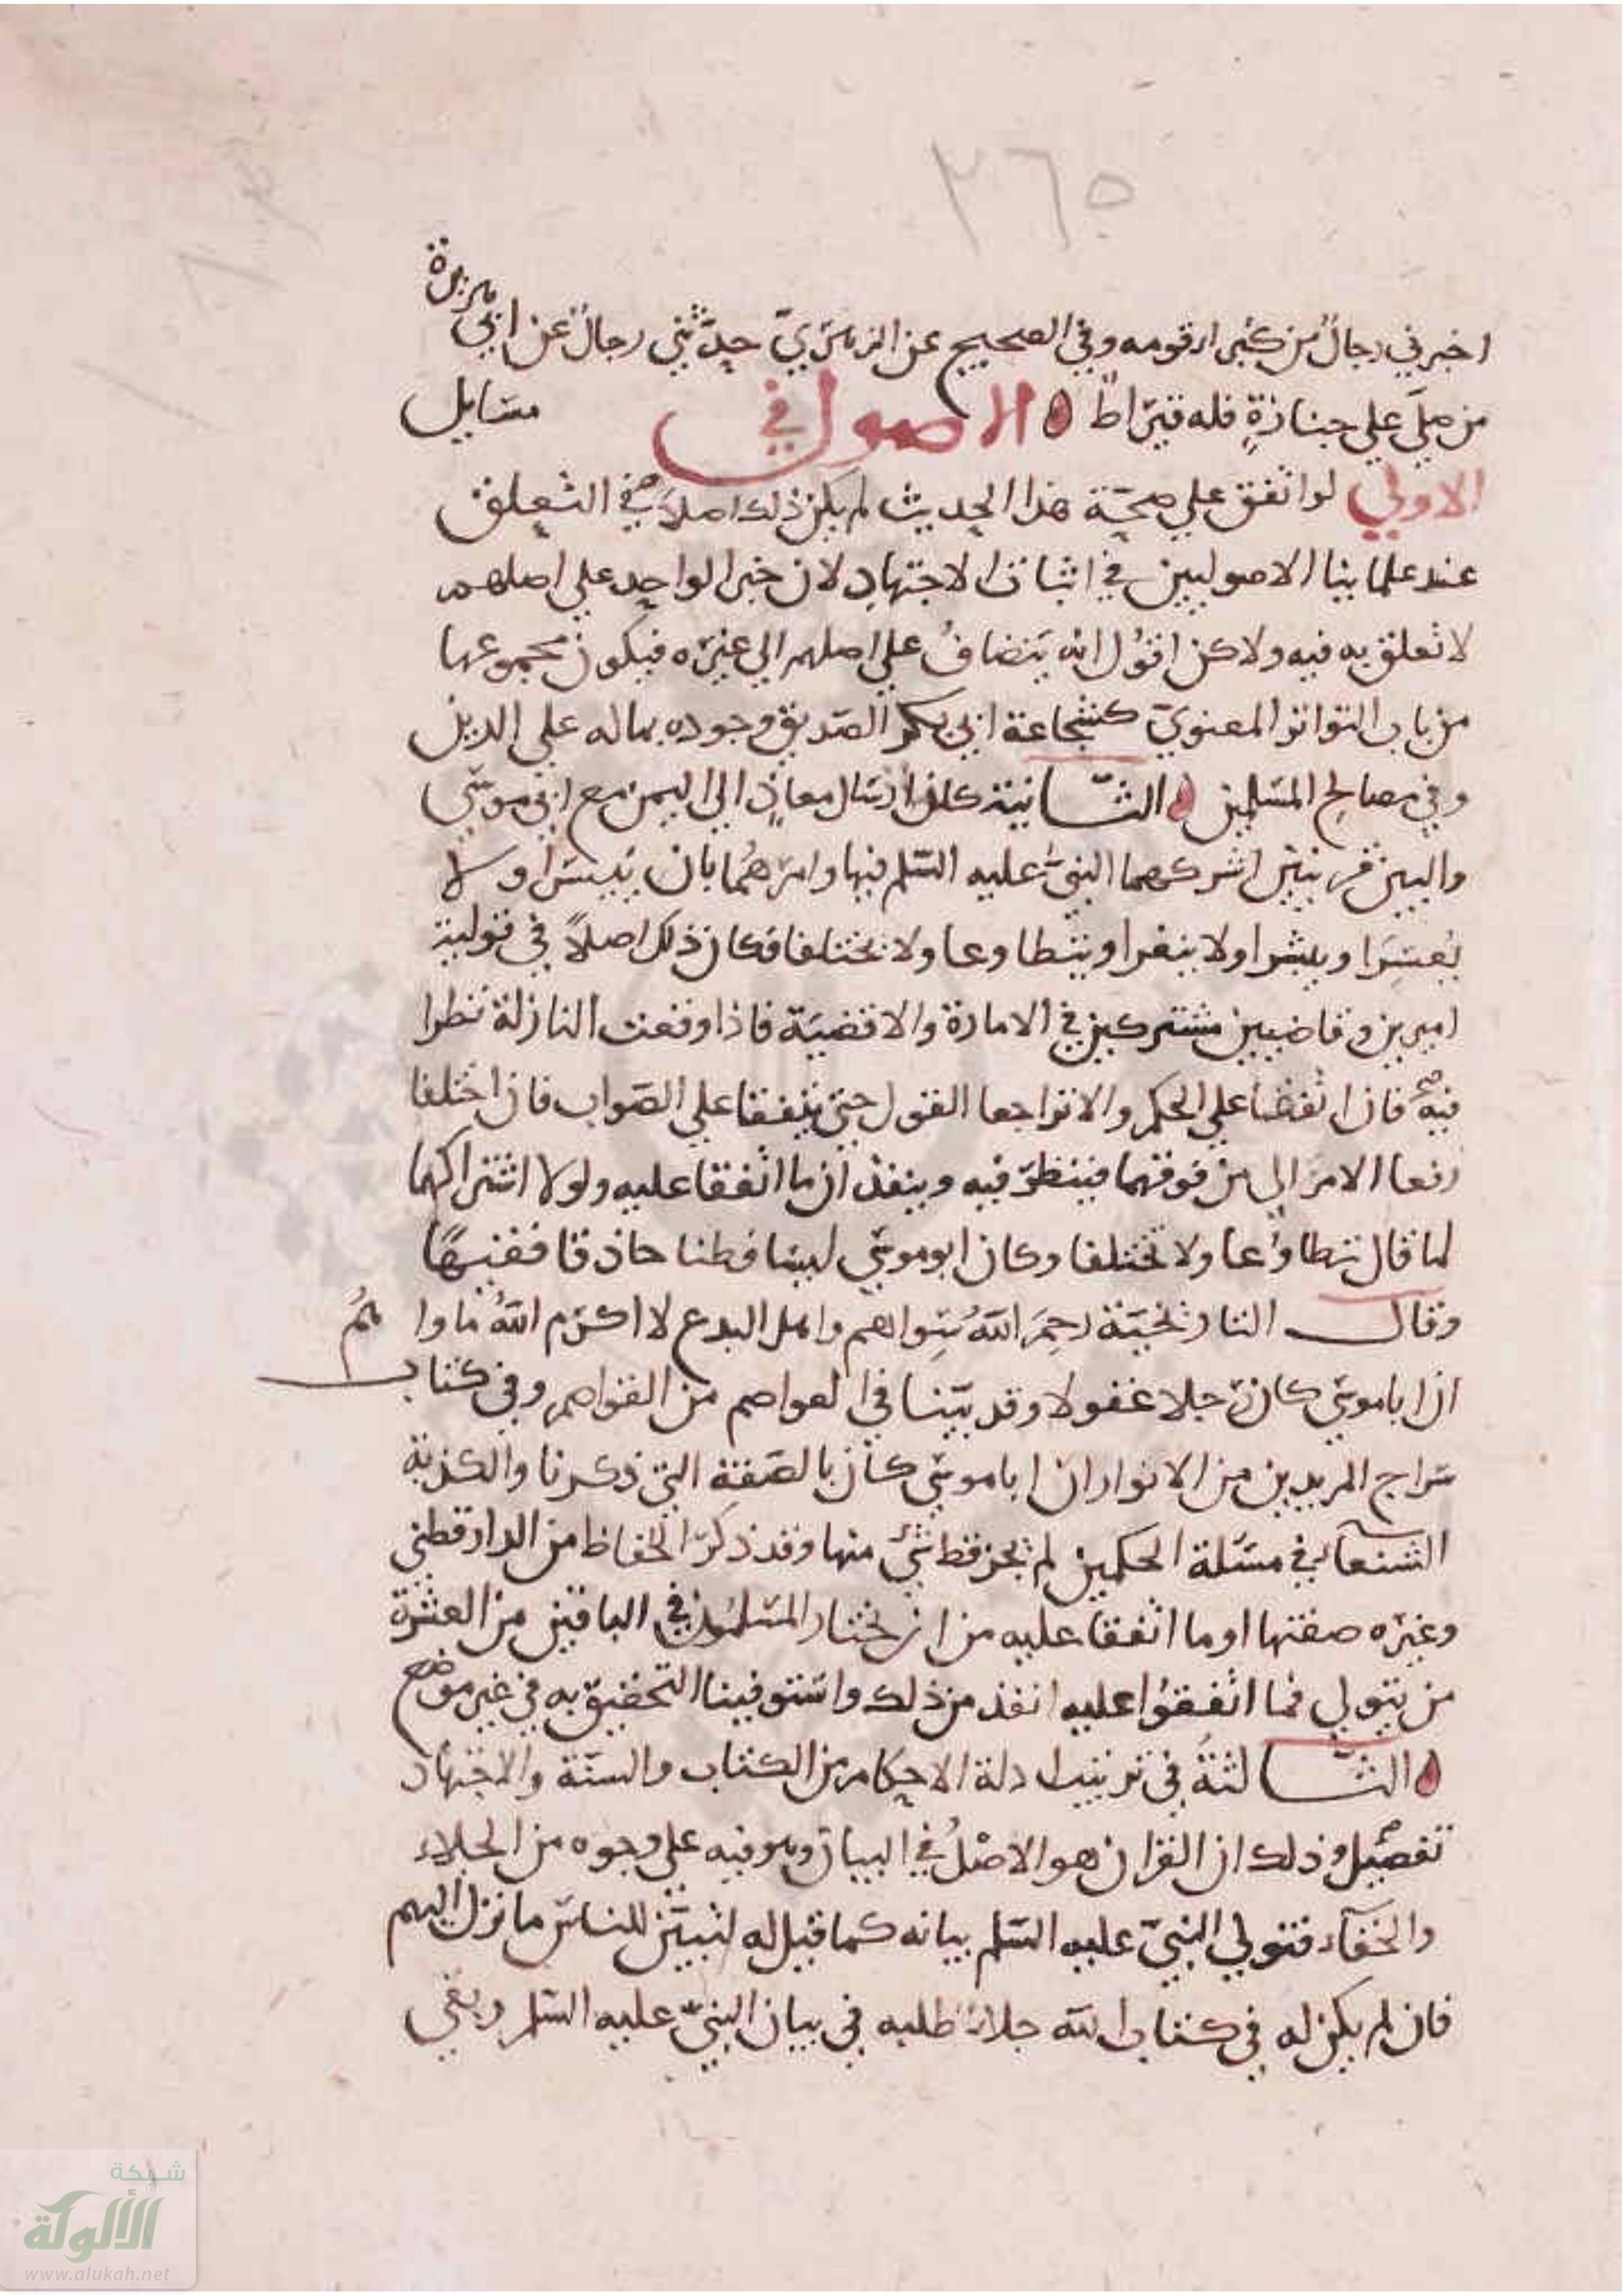 ٣٦٥
اخبرني رجال من كبرا قومه وفي الصحيح عن الزهري حدثني رجال عن ابي هريرة
من صلى علي جنازة فله قيراط ه الاصول في مسايل
الاولي لو اتفق علي صحة هذا الحديث لم يكن ذلك اصلا في التعلق
عند علماينا الاصوليين في اثبات الاجتهاد لان خبر الواحد علي اصلهم
لا تعلق به فيه ولاكن اقول انه يتضاف علي اصلهم الي غيره فيكون مجموعها
من باب التواتر المعنوي كشجاعة ابي بكر الصديق وجوده بماله علي الدين
وفي مصالح المسلمين ه الثانية كان ارسال معاذ الي اليمن مع ابي موسي
واليين قرينين اشركهما النبي عليه السلم فيها وامرهما بان ييسرا ولا
يعسرا ويبشرا ولا ينفرا ويتطاوعا ولا يختلفا فكان ذلك اصلا في تولية
اميرين وقاضيين مشتركين في الامارة والاقضية فاذا وقعت النازلة نظرا
فيه فان اتفقا علي الحكم والا تراجعا القول حتي يتفقا علي الصواب فان اختلفا
رفعا الامر الي من فوقهما فينظر فيه وينفذان ما اتفقا عليه ولولا اشتراكهما
لما قال تطاوعا ولا تختلفا وكان ابو موسي لبيبا فطنا حاذقا فقيها
وقالت التاريخية رحم الله سواهم واهل البدع لا اكرم الله ماواهم
ان ابا موسي كان رجلا غفولا وقد بينا في العواصم من القواصم وفي كتاب
سراج المريدين من الانوار ان ابا موسي كان بالصفة التي ذكرنا والكذبة
الشنعآء في مسئلة الحكمين لم يجر قط شي منها وقد ذكر الحفاظ من الدارقطني
وغيره صفتها او ما اتفقا عليه من ان يختار المسلمون في الباقين من العشرة
من يتولي فما اتفقوا عليه انفذ من ذلك واستوفينا التحقيق به في غير موضع
ه الثالثة في ترتيب ادلة الاحكام من الكتاب والسنة والاجتهاد
تفصيل وذلك ان القران هو الاصل في البيان وهو فيه علي وجوه من الجلاء
والخفآء فتولي النبي عليه السلم بيانه كما قيل له لتبين للناس ما نزل اليهم
فان لم يكن له في كتاب الله جلاء طلبه في بيان النبي عليه السلم وبقي
شبكة
الألوكة
www.alukah.net